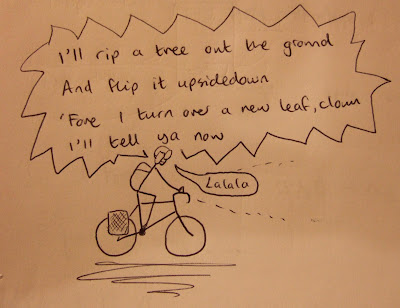 I'll rip a tree out the ground
And flip it upsidedown
'Fore I turn over a new leaf, clown
I'll tell ya now
Lalala